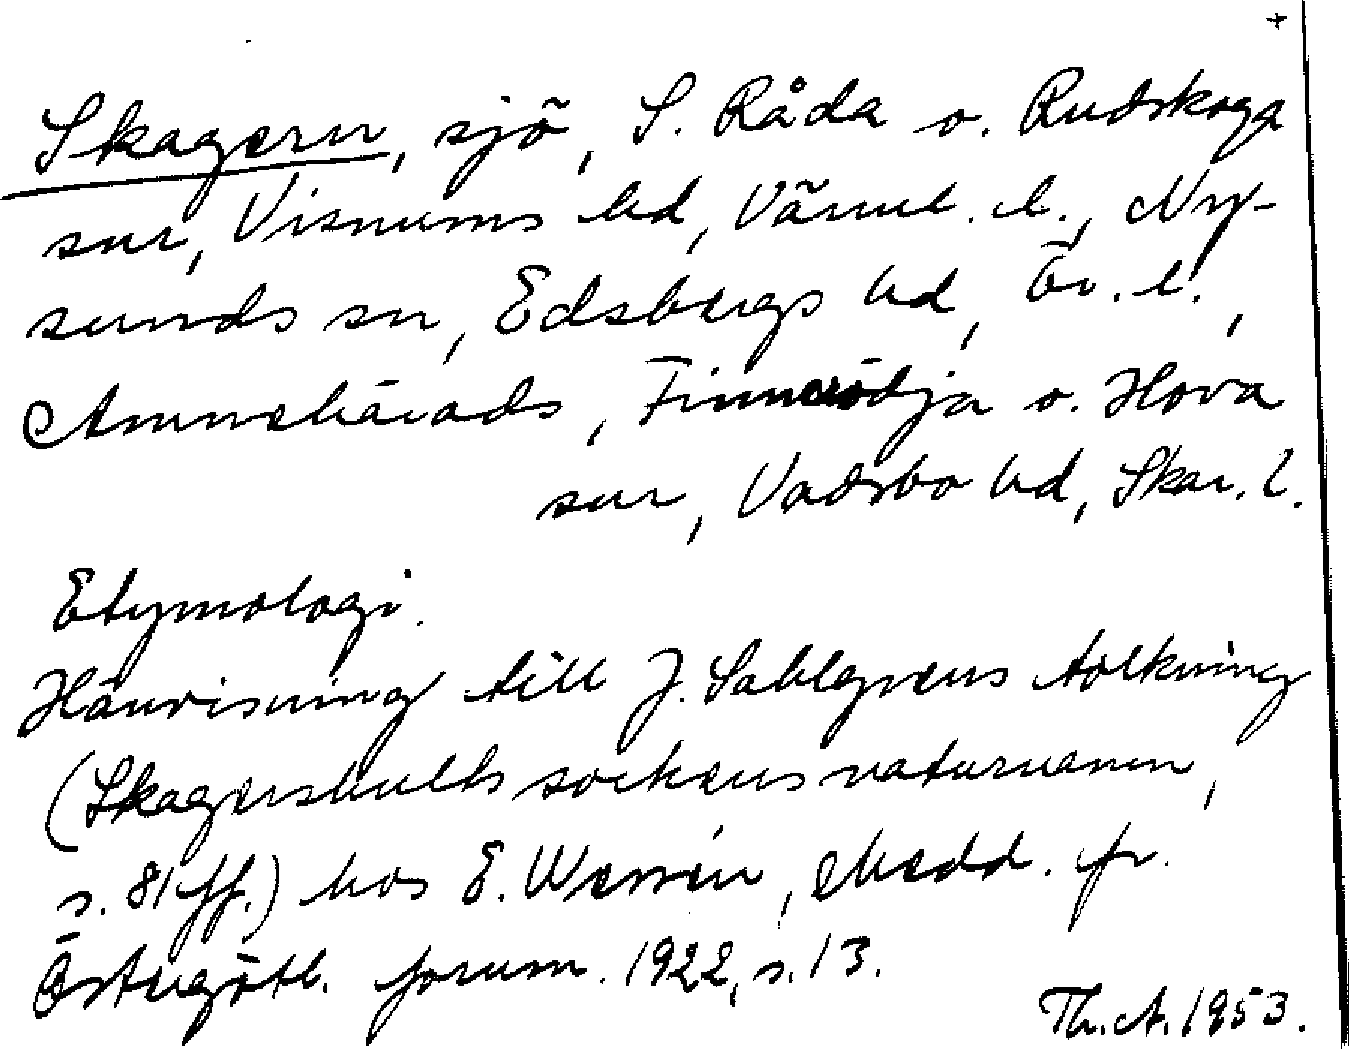 +
Skagern, sjö, S. Råda o. Rudskoga
snr, Visnums hd, Värml. l., Ny-
sunds sn, Edsbergs hd, Ör. l.,
Amnehärads, Finnerödja o. Hova
snr, Vadsbo hd, Skar. l.
Etymologi.
Hänvisning till J. Sahlgrens tolkning
(Skagershults sockens naturnamn,
s. 81 ff.) hos E. Wessén, Medd. fr.
Östergötl. fornm. 1922, s. 13.
Th. A. 1953.